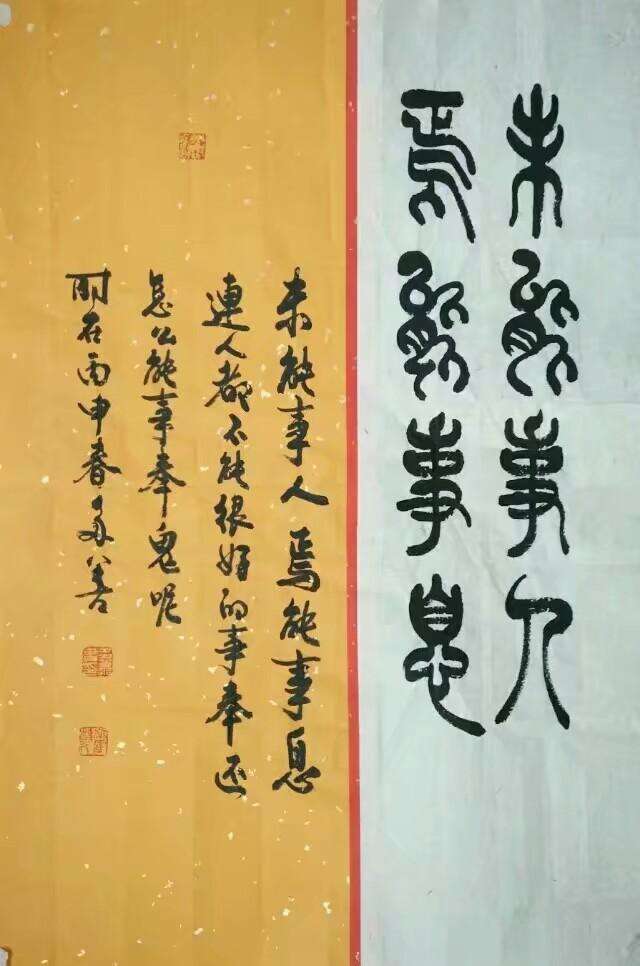 未能事人
焉能事息
未能事人焉能事息
連人都不能很好的事奉还
怎么能事奉鬼呢
时在丙申春